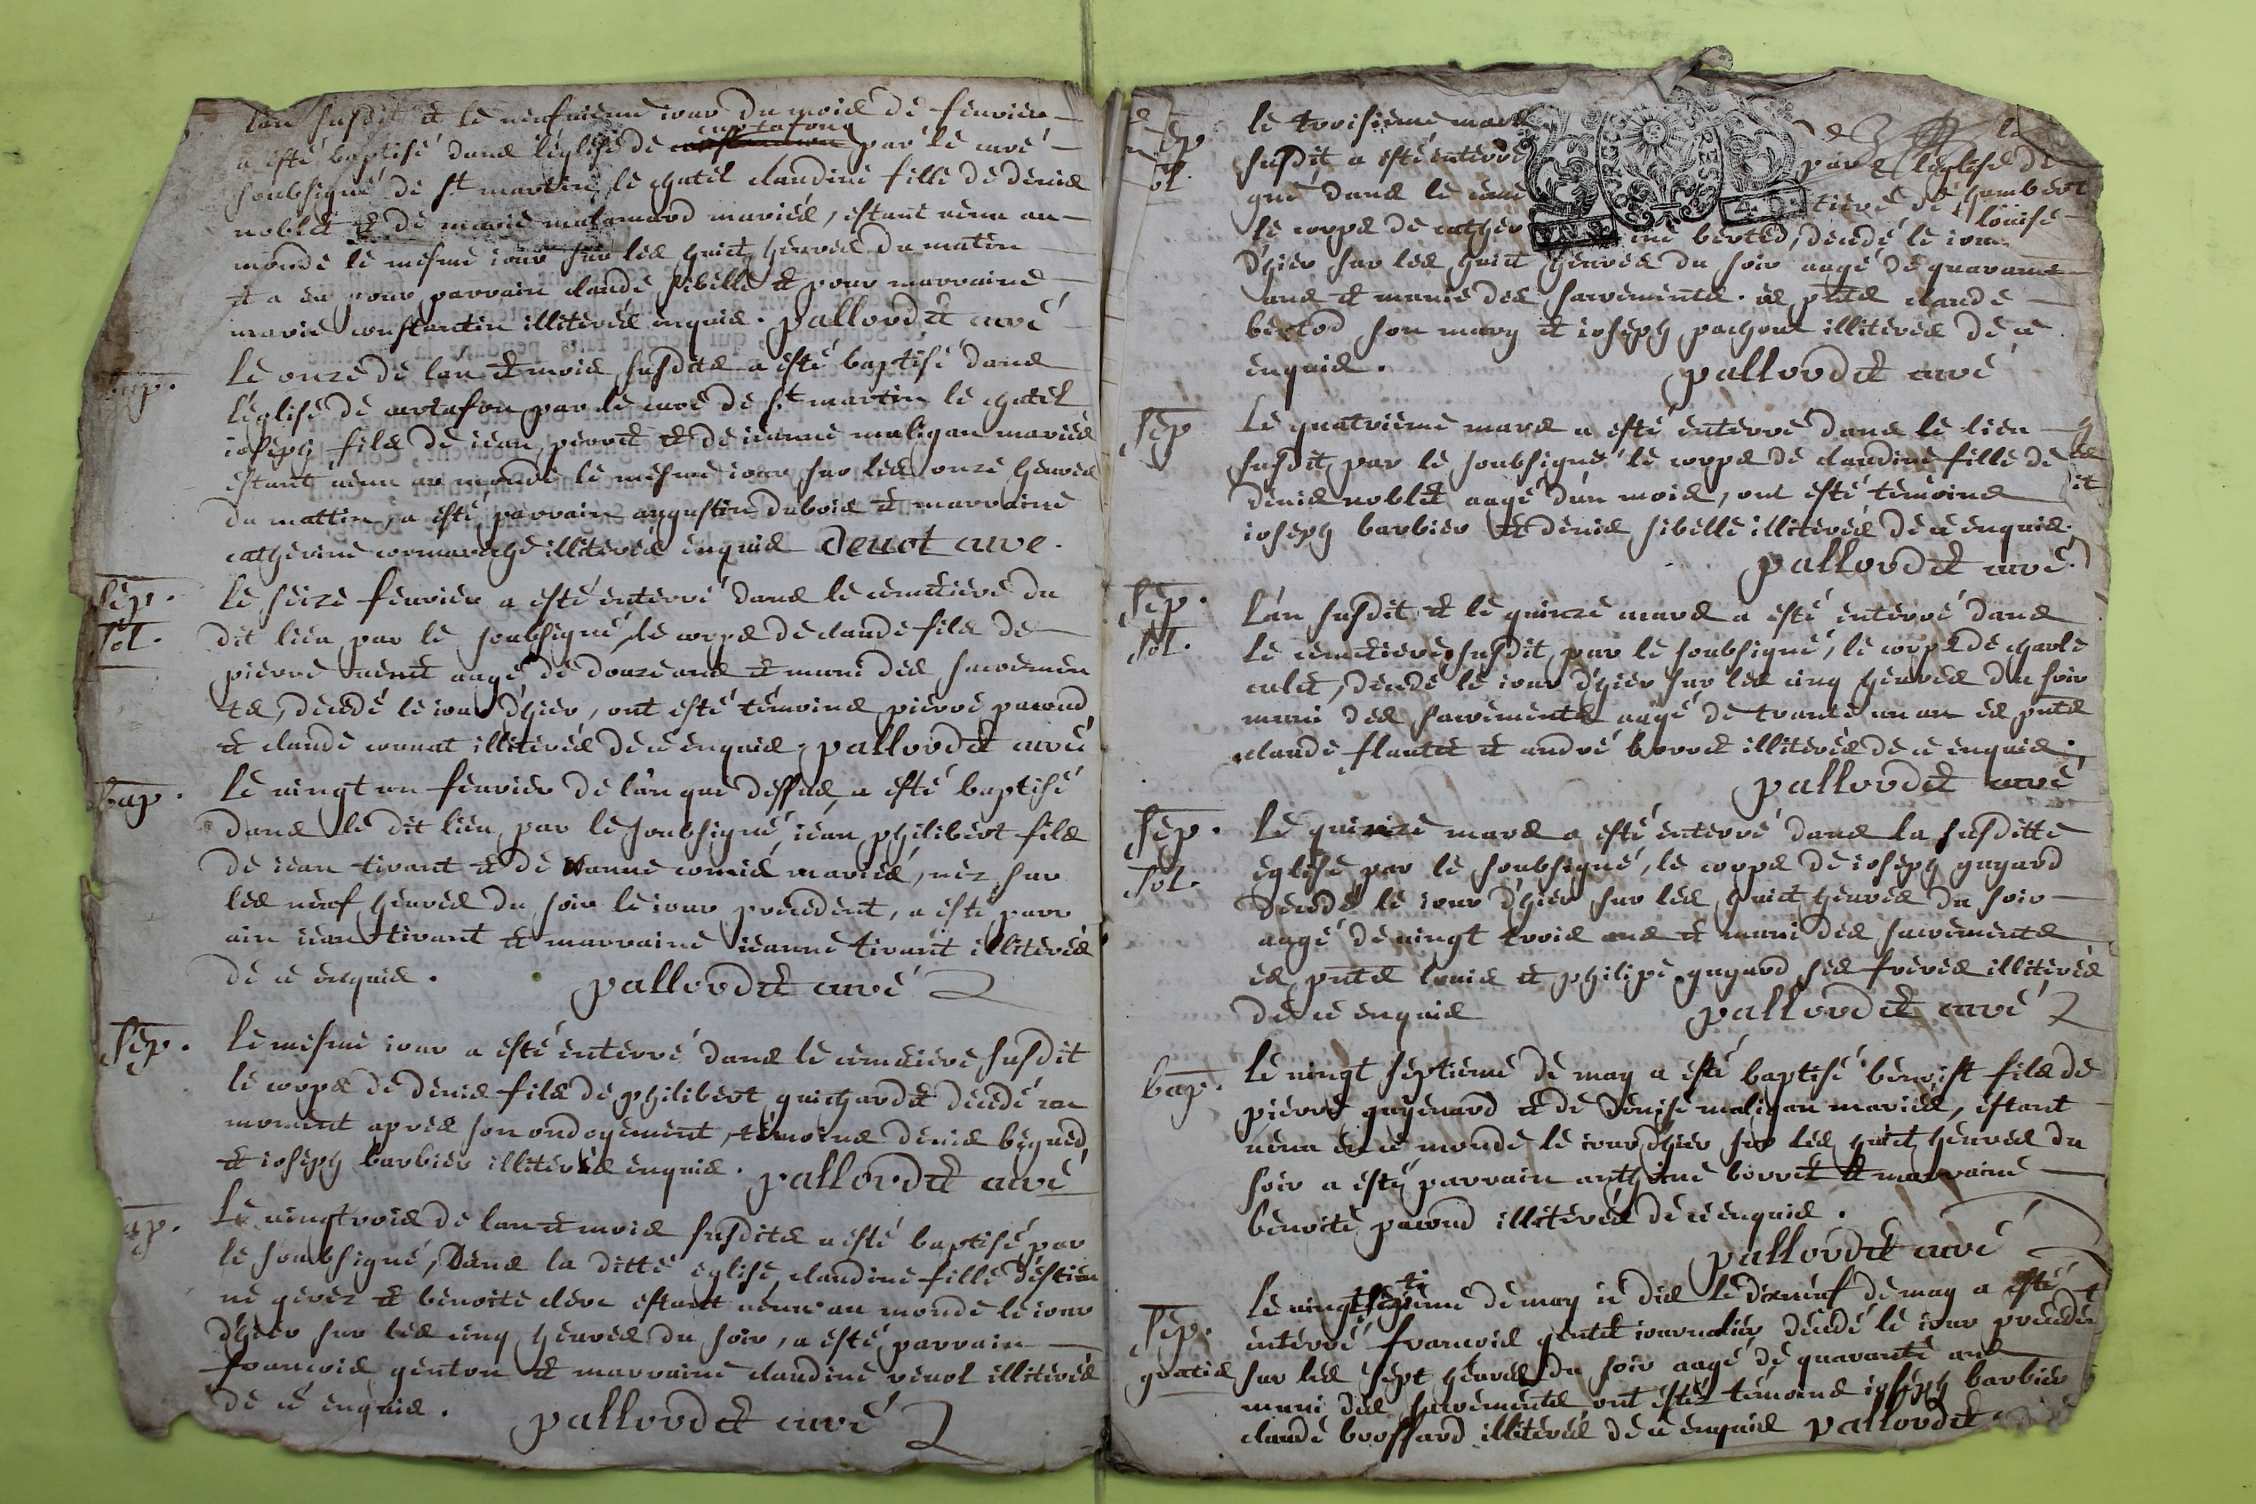 lan susdit et le neufuieme iour du mois de feurier
a esté baptisé dans leglise de curtafong par le curé
soubsigné de st martin le chatel claudine fille de denis
noblet et de marie mariés, estant uenu au
monde le mesme iour sur les huict heures du matin
et a eu pour parrain claude sibelle et pour marraine
marie constantin illiterés enquis. pallordet curé
bap.
Le onze de lan et mois susdits a esté baptisé dans
l'eglise de curtafon par le curé de st martin le chatel
ioseph fils de iean perret et de ieanne maligan mariés
estant uenu au monde le mesme iour sur les onze heures
du mattin, a esté parrain augustin dubois et marraine
catherine cormareche illiterés enquis deuot curé.
sep.
sol.
le seize feurier a esté enterré dans le cemetiere du
dit lieu par le soubsigné, le corps de claude fils de
pierre uenet aagé de douze ans et muni des sacremen
ts, decedé le iour d'hier, ont esté témoins pierre pacoud
et claude connat illiterés de ce enquis. pallordet curé
bap.
le uingt un feurier de l'an que dessus a esté baptisé
dans le dit lieu par le soubsigné, iean philibert fils
de iean tirant et de ieanne comié mariés, nez sur
les neuf heures du soir le iour precedent, a esté parr
ain iean tirant et marraine ieanne tirant illiterés
de ce enquis. pallordet curé
sep.
le mesme iour a esté enterré dans le cemetiere susdit
le corps de denis fils de philibert guichardet decedé un
moment apres son ondoyement, témoins denis begued
et ioseph barbier illiterés enquis. pallordet curé
bap.
Le uingt trois de lan et mois susdits a esté baptisé par
le soubsigné, dans la ditte eglise, claudine fille d'estien
ne geuez et benoite clerc estant uenu au monde le iour
d'hier sur les cinq heures du soir, a esté parrain
francois genton et marraine claudine renol illiterés
de ce enquis. pallordet curé
sep.
sol.
le troisieme mars
susdit a esté enterré par leglise de
gné dans le cime tiere de chambert
le corps de cather ine berted, decedé le iour louise
d'hier sur les huict heures du soir aagé de quarante
ans et munie des sacrements. es pnts claude
bertod son mary et ioseph pachout illiterés de ce
enquis. pallordet curé
sep
Le quatrieme mars a esté enterré dans le lieu
susdit par le soubsigné le corps de claudine fille de
denis noblet aagé d'un mois, ont esté témoins
ioseph barbier et denis sibelle illiterés de ce enquis.
pallordet curé.
sep.
sol.
L'an susdit et le quinze mars a esté enterré dans
le cemetiere susdit par le soubsigné, le corps de charle
culet, decedé le iour d'hier sur les cinq heures du soir
muni des sacrements aagé de trante un an es pnts
claude flautet et andré borret illiterés de ce enquis.
pallordet curé
sep.
sol.
Le quinze mars a esté enterré dans la susditte
eglise par le soubsigné, le corps de ioseph guyard
decedé le iour d'hier sur les huict heures du soir
aagé de uingt trois ans et muni des sacrements
es pnts louis et philipe guyard ses freres illiterés
de ce enquis pallordet curé
bap.
Le uingt septieme de may a esté baptisé benoist fils de
pierre guyenard et de denise maligan mariés, estant
uenu en ce monde le iour d'hier sur les huict heures du
soir a esté parrain anthoine borret et marraine
benoite pacoud illiterés de ce enquis.
pallordet curé
sep.
gratis
Le uingt septieme de may ie dis le dixneuf de may a esté
enterré francois gentet iournalier decedé le iour preceden
sur les sept heures du soir aagé de quarante ans
muni des sacrements ont estez témoins ioseph barbier
claude brossard illiterés de ce enquis pallordet